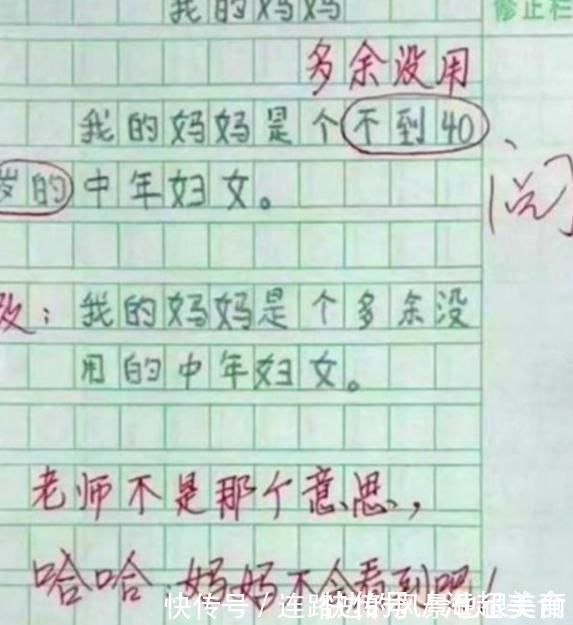 我的妈妈
修正栏
多余没用
我的妈妈是个不到40
岁的中年妇女。
阅
改：我的妈妈是个多余没
用的中年妇女。
老师不是那个意思，
哈哈，妈妈不会看到吧！
快传号／连路边的风景